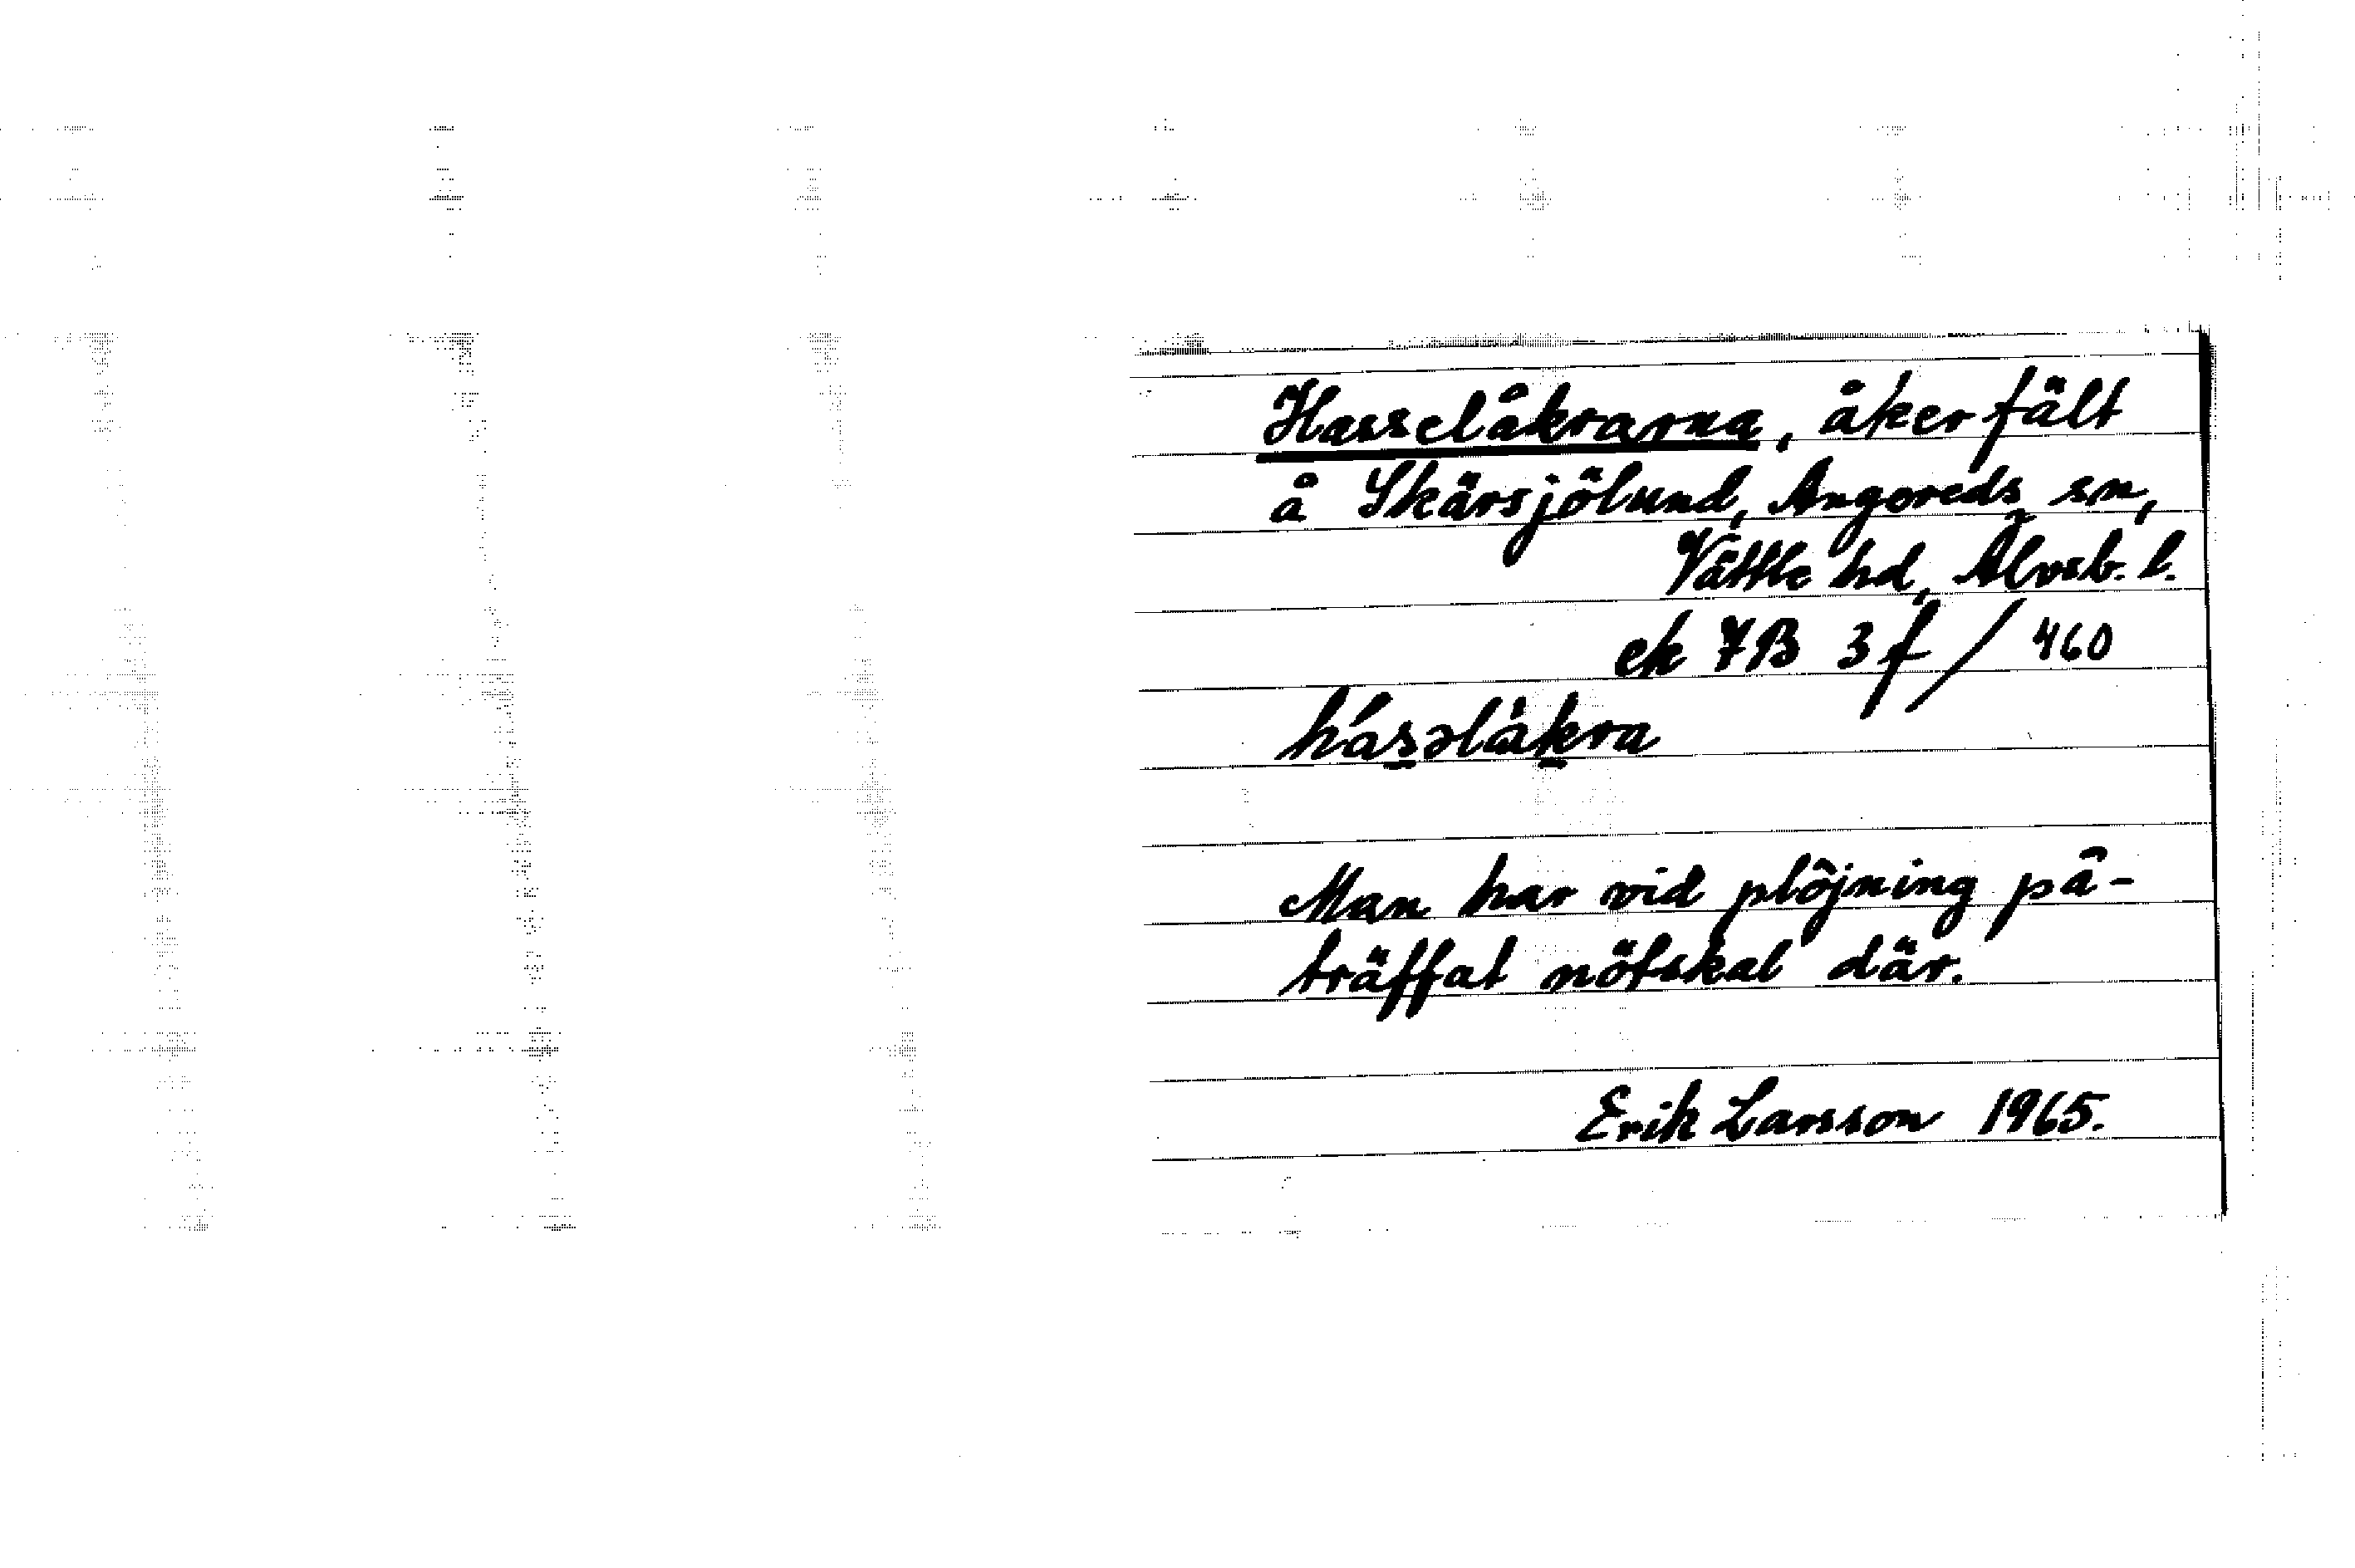 Hasselåkrarna, åkerfält
å Skärsjölund, Angereds sn,
Vättle hd, Älvsb. l.
ek 7B 3f / 460
hásəlåkra
Man har vid plöjning på-
träffat nötskal där.
Erik Larsson 1965.